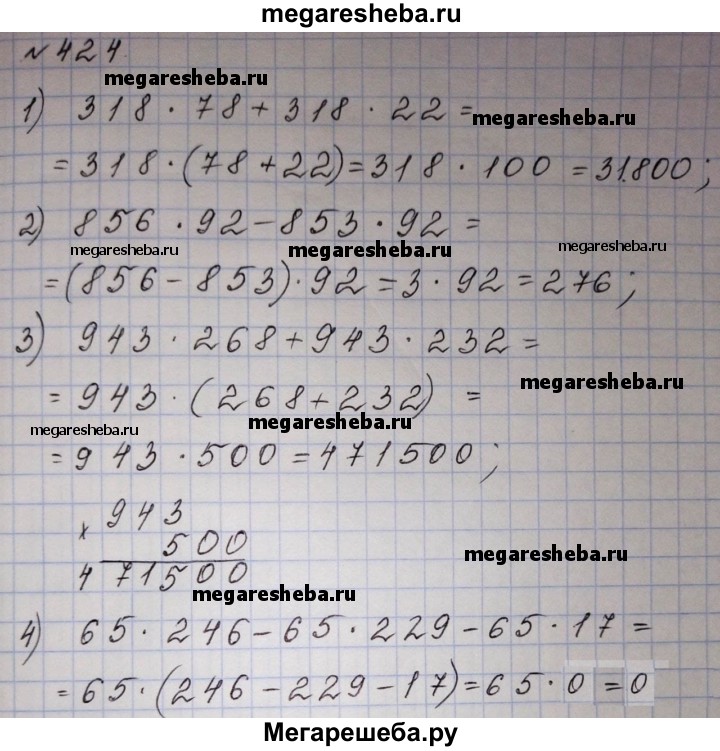 megaresheba.ru
№ 424
megaresheba.ru
1) 318 · 78 + 318 · 22 =
megaresheba.ru
= 318 · (78 + 22) = 318 · 100 = 31800;
2) 856 · 92 - 853 · 92 =
megaresheba.ru megaresheba.ru megaresheba.ru
= (856 - 853) · 92 = 3 · 92 = 276;
3) 943 · 268 + 943 · 232 =
megaresheba.ru
= 943 · (268 + 232) =
megaresheba.ru megaresheba.ru
= 943 · 500 = 471500;
x 943
500
megaresheba.ru
471500
megaresheba.ru
4) 65 · 246 - 65 · 229 - 65 · 17 =
= 65 · (246 - 229 - 17) = 65 · 0 = 0
Мегарешеба.ру